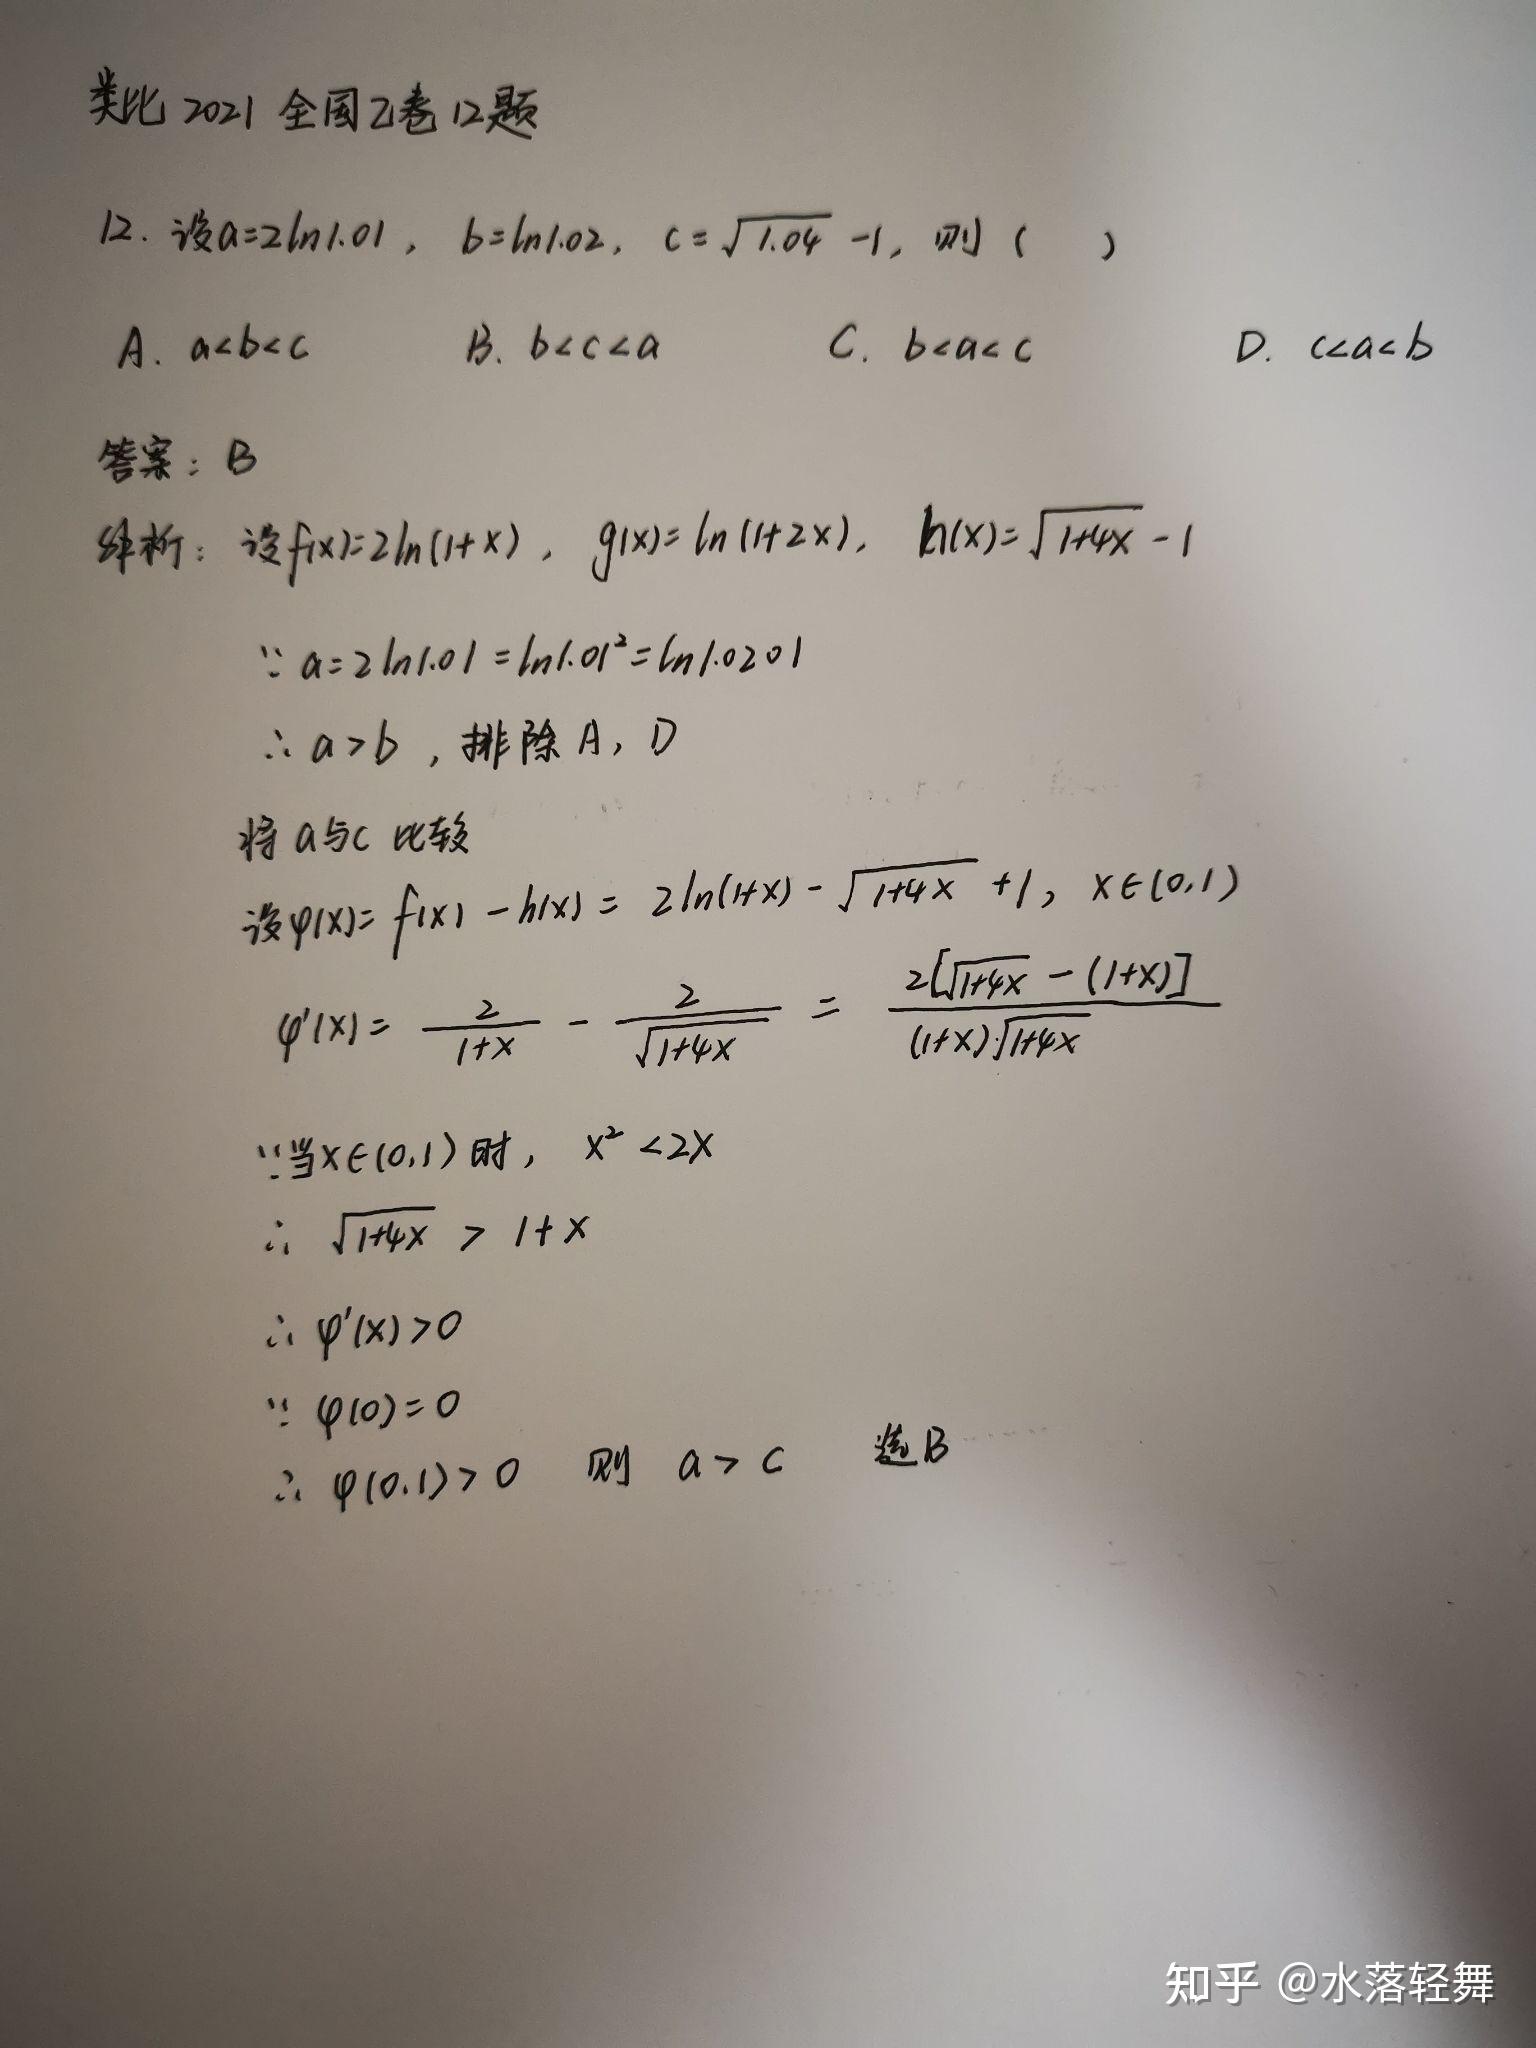 类比 2021 全国乙卷12题
12. 设a=2ln1.01, b=ln1.02, c=√1.04 -1, 则 ( )
A. a<b<c B. b<c<a C. b<a<c D. c<a<b
答案: B
解析: 设f(x)=2ln(1+x), g(x)=ln(1+2x), h(x)=√(1+4x) -1
∵ a=2ln1.01=ln1.01²=ln1.0201
∴ a>b, 排除A, D
将a与c比较
设φ(x)=f(x)-h(x)= 2ln(1+x)-√(1+4x) +1, x∈(0,1)
φ'(x)= 2/(1+x) - 2/√(1+4x) = 2[√(1+4x) -(1+x)]/((1+x)·√(1+4x))
∵当x∈(0,1)时, x²<2x
∴ √(1+4x) > 1+x
∴ φ'(x)>0
∵ φ(0)=0
∴ φ(0.1)>0 则 a>c 选B
知乎 @水落轻舞